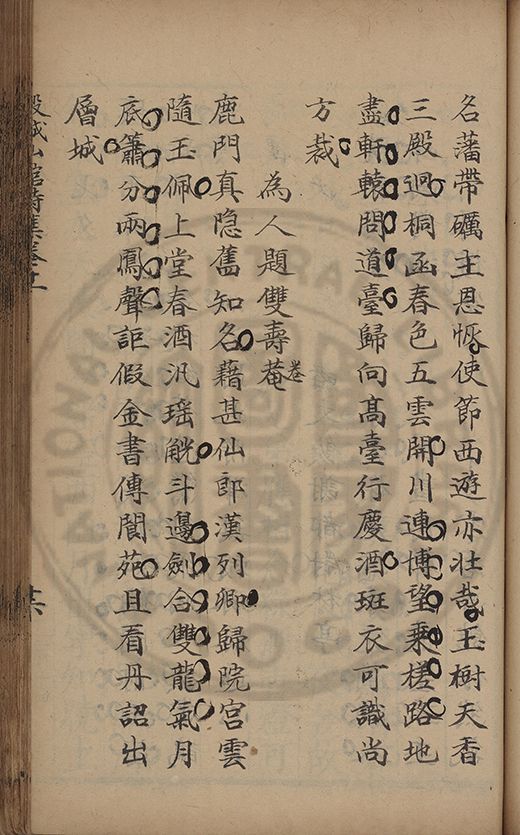 名藩帶礪主恩恢使節西遊亦壯哉玉樹天香
三殿迥桐函春色五雲開川連博望乘槎路地
盡軒轅問道臺歸向髙臺行慶酒斑衣可識尚
方裁
為人題雙壽菴卷
鹿門真隐舊知名藉甚仙郎漢列卿歸院宮雲
隨玉佩上堂春酒汎瑶觥斗邊劍合雙龍氣月
底簫分兩鳳聲詎假金書傳閬苑且看丹詔出
層城
穀城山館詩集卷十